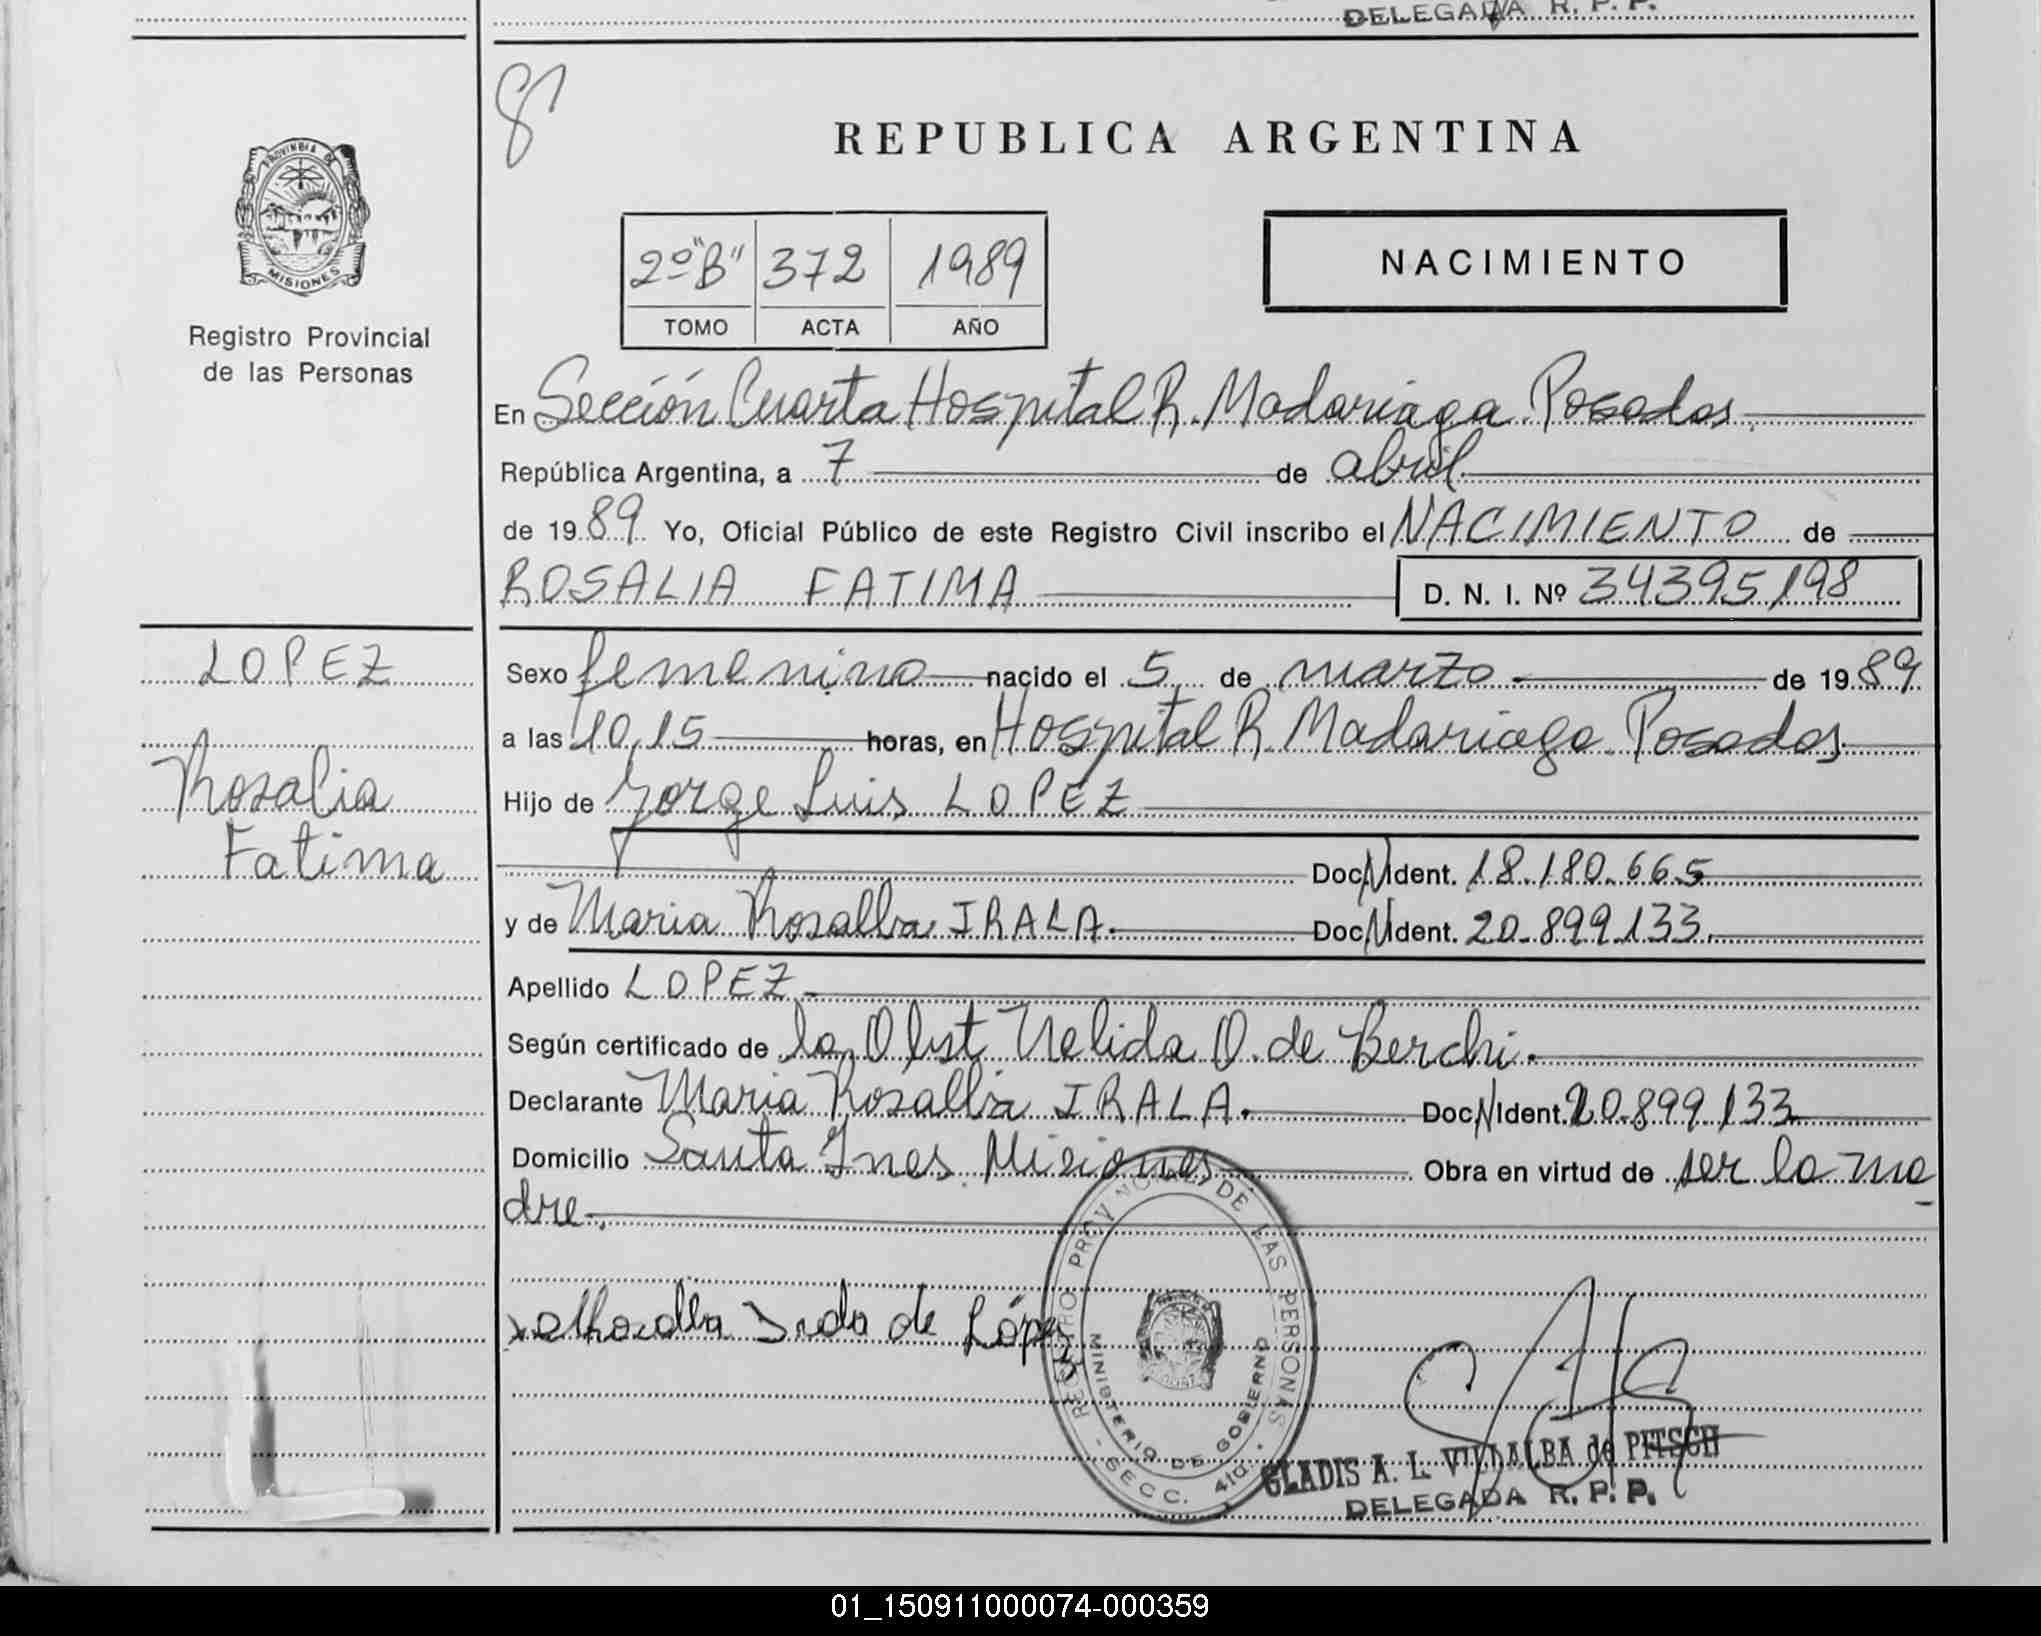 DELEGADA R. P. P.
8
PROVINCIA DE
MISIONES
Registro Provincial
de las Personas
REPUBLICA ARGENTINA
2º "B" 372 1989
TOMO ACTA AÑO
NACIMIENTO
En Sección Cuarta Hospital R. Madariaga Posadas
República Argentina, a 7 de abril
de 1989 Yo, Oficial Público de este Registro Civil inscribo el NACIMIENTO de
ROSALIA FATIMA D. N. I. Nº 34395198
LOPEZ
Rosalia
Fatima
Sexo femenino nacido el 5 de marzo de 1989
a las 10,15 horas, en Hospital R. Madariaga Posadas
Hijo de Jorge Luis LOPEZ
Doc. N Ident. 18.180.665
y de Maria Rosalba IRALA. Doc. N Ident. 20.899.133.
Apellido LOPEZ
Según certificado de la Obst Nelida O. de Berchi.
Declarante Maria Rosalba IRALA. Doc. N Ident. 20.899.133
Domicilio Santa Ines Misiones Obra en virtud de ser la ma
dre.
de López
REGISTRO PROVINCIAL DE LAS PERSONAS
MINISTERIO DE GOBIERNO
- SECC. 4ta. -
GLADIS A. L. VILLALBA de PITSCH
DELEGADA R. P. P.
01_150911000074-000359